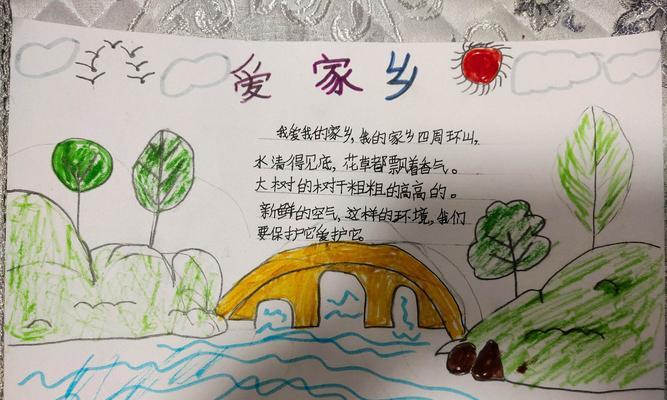 爱家乡
我爱我的家乡,我的家乡四周环山,
水清得见底,花草都飘着香气。
大树的树干粗粗的高高的。
新鲜的空气,这样的环境,我们
要保护它爱护它。